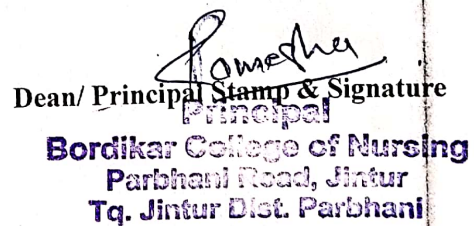 Dean/ Principal Stamp & Signature
Principal
Bordikar College of Nursing
Parbhani Road, Jintur
Tq. Jintur Dist. Parbhani